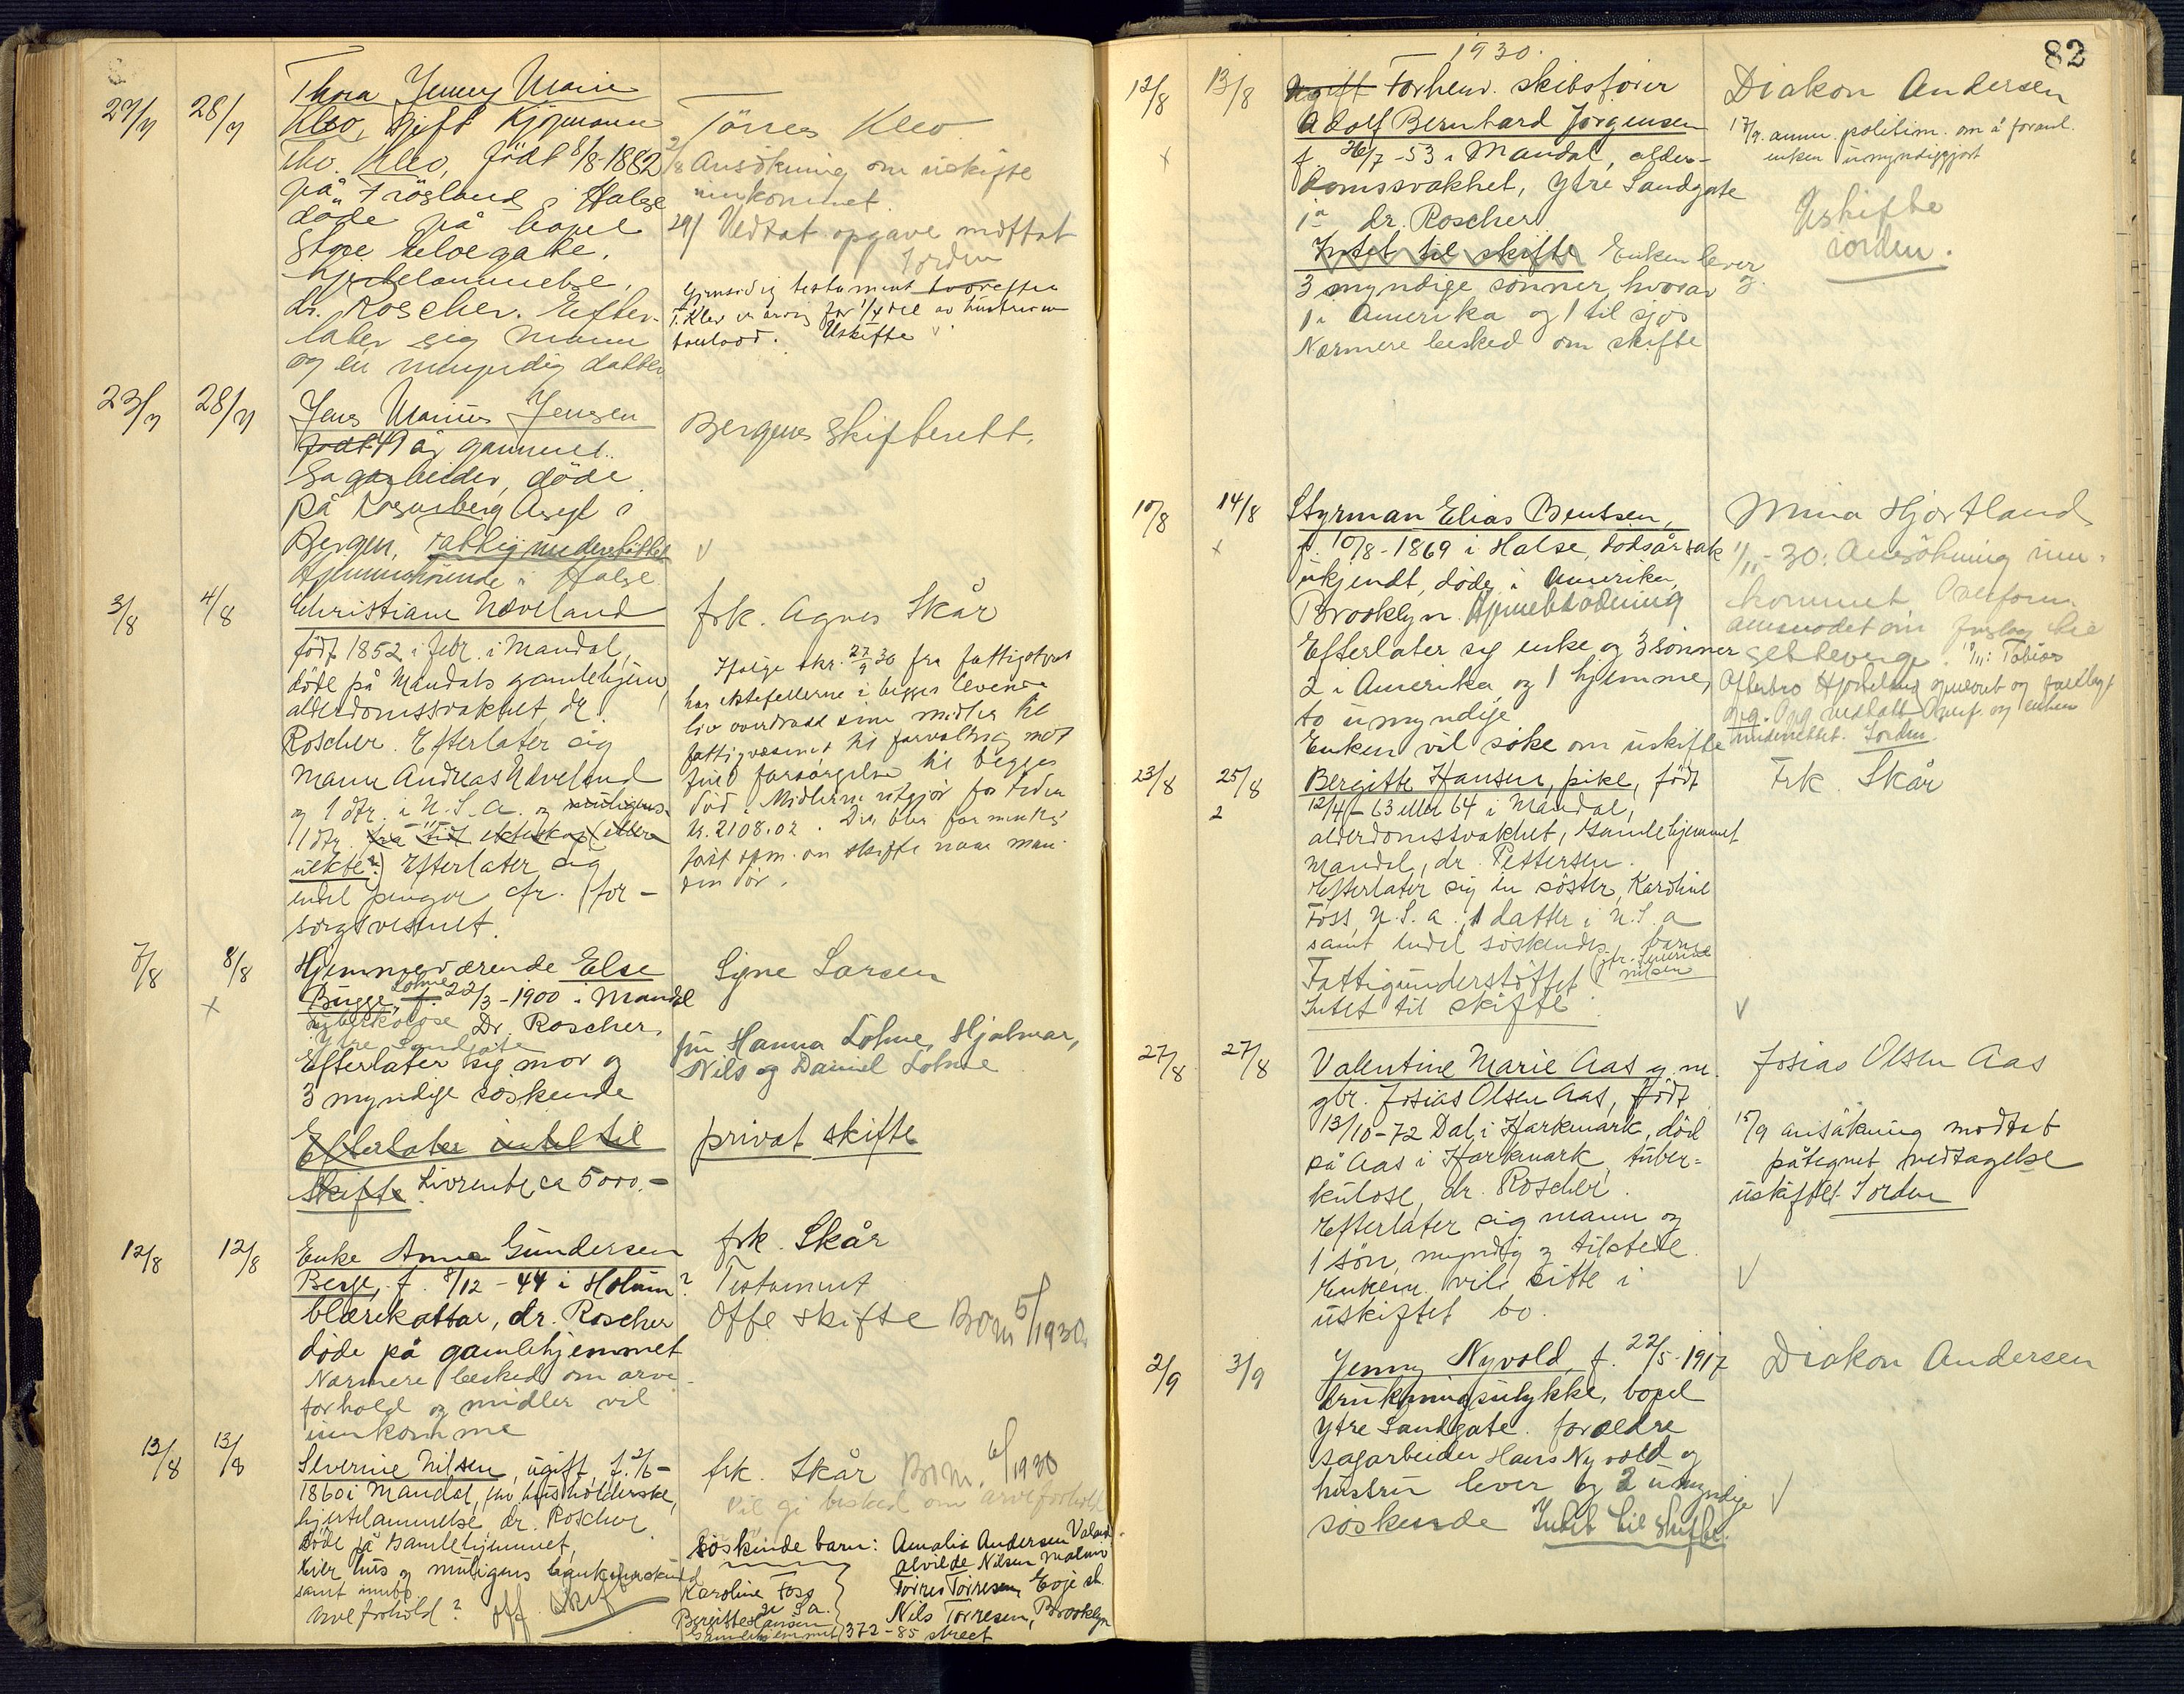 27/7 28/7 Thora Jenny Marie
Klev, gift Kjøpmann
Tho. Klev, född 8/8-1882
på Frøsland i Halse
døde på bopel
Store Elvegate.
hjertelammelse,
dr. Roscher. Efter-
later sig mann
og en myndig datter
Tørres Klev
2/8 Ansøkning om uskifte
innkommet.
29/ Vedtat opgave mottat
Iorden
Gjensidig testament hvorefter
T. Klev er arving for 1/4 del av hustruens
Uskifte
23/7 28/7 Jens Marius Jensen
født 49 år gammel.
Sagarbeider, døde
på Rosenberg Asyl i
Bergen, Fattigunderstøttet
Hjemmehørende i Halse
Bergens Skifterett.
3/8 4/8 Christiane Nøveland
født 1852 i febr. i Mandal,
døde på Mandals gamlehjem,
alderdomssvakhet, dr.
Roscher. Efterlater sig
mann Andreas Nøveland
og 1 dtr. i U.S.A. og muligens
1 dtr. fra tidl ekteskap (eller
uekte?) Efterlater sig
endel penger cfr. for-
sorgsvesenet.
frk. Agnes Skår
Ifølge skr. 27/9 30 fra fattigstyret
har ektefellerne i begges levende
liv overdradd sine midler til
fattigvæsenet til forvaltning mot
fuld forsørgelse til begges
død. Midlerne utgjør for tiden
kr. 2108.02. Det blir formentlig
først spm. om skifte naar man-
den dør.
7/8 8/8 Hjemmeværende Else
Bugge Lohne f. 22/3-1900 i Mandal
tuberkolose Dr. Roscher.
Ytre Sandgate
Efterlater sig mor og
3 myndige søskende
Efterlater intet til
skifte Livrente ca 5000.-
Signe Larsen
fru Hanna Lohne, Hjalmar,
Nils og Daniel Lohne
privat skifte
12/8 12/8 Enke Anna Gundersen
Berge, f. 8/12-44 i Holum?
blærekattar, dr. Roscher
døde på gamlehjemmet
Nærmere besked om arve-
forhold og midler vil
innkomme
frk. Skår
Testament
Off skifte Bom 5/1930
13/8 13/8 Severine Nilsen, ugift, f. 2/6-
1860 i Mandal, husholderske,
hjertelammelse dr. Roscher.
døde på Gamlehjemmet,
Eier hus og muligens bankinnskudd
samt innbo
Arveforhold? Off. skif
frk. Skår Bom. 6/1930
vil gi besked om arveforhold
Søskinde barn: Amalie Andersen Valand.
Alvilde Nilsen Malmø
Karoline Foss Tørres Tørresen, Evje st.
U.S.a. Nils Tørresen, Brooklyn
Bergitte Hansen
Gamlehjemmet 372-85 street
82
1930.
12/8 13/8 Ugift Forhenv. skibsfører
Adolf Bernhard Jørgensen
f. 26/7-53 i Mandal, alder-
domssvakhet, Ytre Sandgate
1a dr. Roscher
Intet til skifte Enken lever
3 myndige sønner, hvorav
1 i Amerika og 1 til sjøs
Nærmere besked om skifte
Diakon Andersen
17/9. anm. politim. om å foranl.
enken umyndiggjort
Uskifte
iorden.
10/8 14/8 Styrman Elias Bentsen,
f. 10/8-1869 i Halse, dødsårsak
ukjendt, døde i Amerika,
Brooklyn. Hjernebløtning
Efterlater sig enke og 3 sønner
2 i Amerika og 1 hjemme,
to umyndige
Enken vil søke om uskifte
Mina Hjortland
1/11-30: Ansøkning inn-
kommet, Overform.
anmodet om forslag til
setteverge. 10/11: Tobias
Hjortland opnevnt og
Iorden.
23/8 25/8 Bergitte Hansen, pike, født
12/4-63 eller 64 i Mandal,
alderdomssvakhet, Gamlehjemmet
Mandal, dr. Pettersen.
Efterlater sig en søster, Karoline
Foss, U.S.a., 1 datter i U.S.a
samt endel søskendes barn
(jfr. Severine
Nilsen
Fattigunderstøttet
Intet til skifte.
Frk. Skår
27/8 27/8 Valentine Marie Aas g. m.
gbr. Josias Olsen Aas, født
13/10-72 Dal i Harkmark, død
på Aas i Harkmark, tuber-
kulose, dr. Roscher.
Efterlater sig mann og
1 søn, myndig og tilstede.
Enkem. vil sitte i
uskiftet bo.
Josias Olsen Aas
15/9 ansøkning modtat
påtegnet vedtagelse
uskiftet Iorden
2/9 3/9 Jenny Nyvold f. 22/5-1917
drukningsulykke, bopel
Ytre Sandgate. forældre
sagarbeider Hans Nyvold og
hustru lever og 2 umyndige
søskende Intet til skifte.
Diakon Andersen